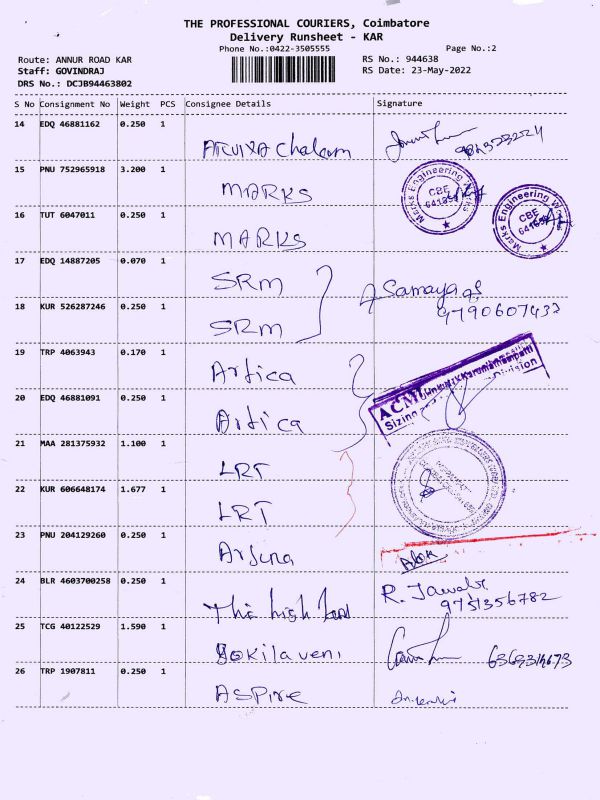 THE PROFESSIONAL COURIERS, Coimbatore
Delivery Runsheet - KAR
Phone No.:0422-3505555
Page No.:2
Route: ANNUR ROAD KAR
RS No.: 944638
Staff: GOVINDRAJ
RS Date: 23-May-2022
DRS No.: DCJB94463802
S No Consignment No Weight PCS Consignee Details Signature
14 EDQ 46881162 0.250 1
15 PNU 752965918 3.200 1 MARKS
Marks Engineering CBE
16 TUT 6047011 0.250 1 MARKS
Marks Engineering CBE
17 EDQ 14887205 0.070 1 SRM
18 KUR 526287246 0.250 1 SRM
9790607433
19 TRP 4063943 0.170 1 Artica
20 EDQ 46881091 0.250 1 Artica
Sizing Division
21 MAA 281375932 1.100 1 LRT
22 KUR 606648174 1.677 1 LRT
23 PNU 204129260 0.250 1 Arjuna
24 BLR 4603700258 0.250 1 The high
9751356782
25 TCG 40122529 1.590 1 Gokilaveni
26 TRP 1907811 0.250 1 ASPIRE